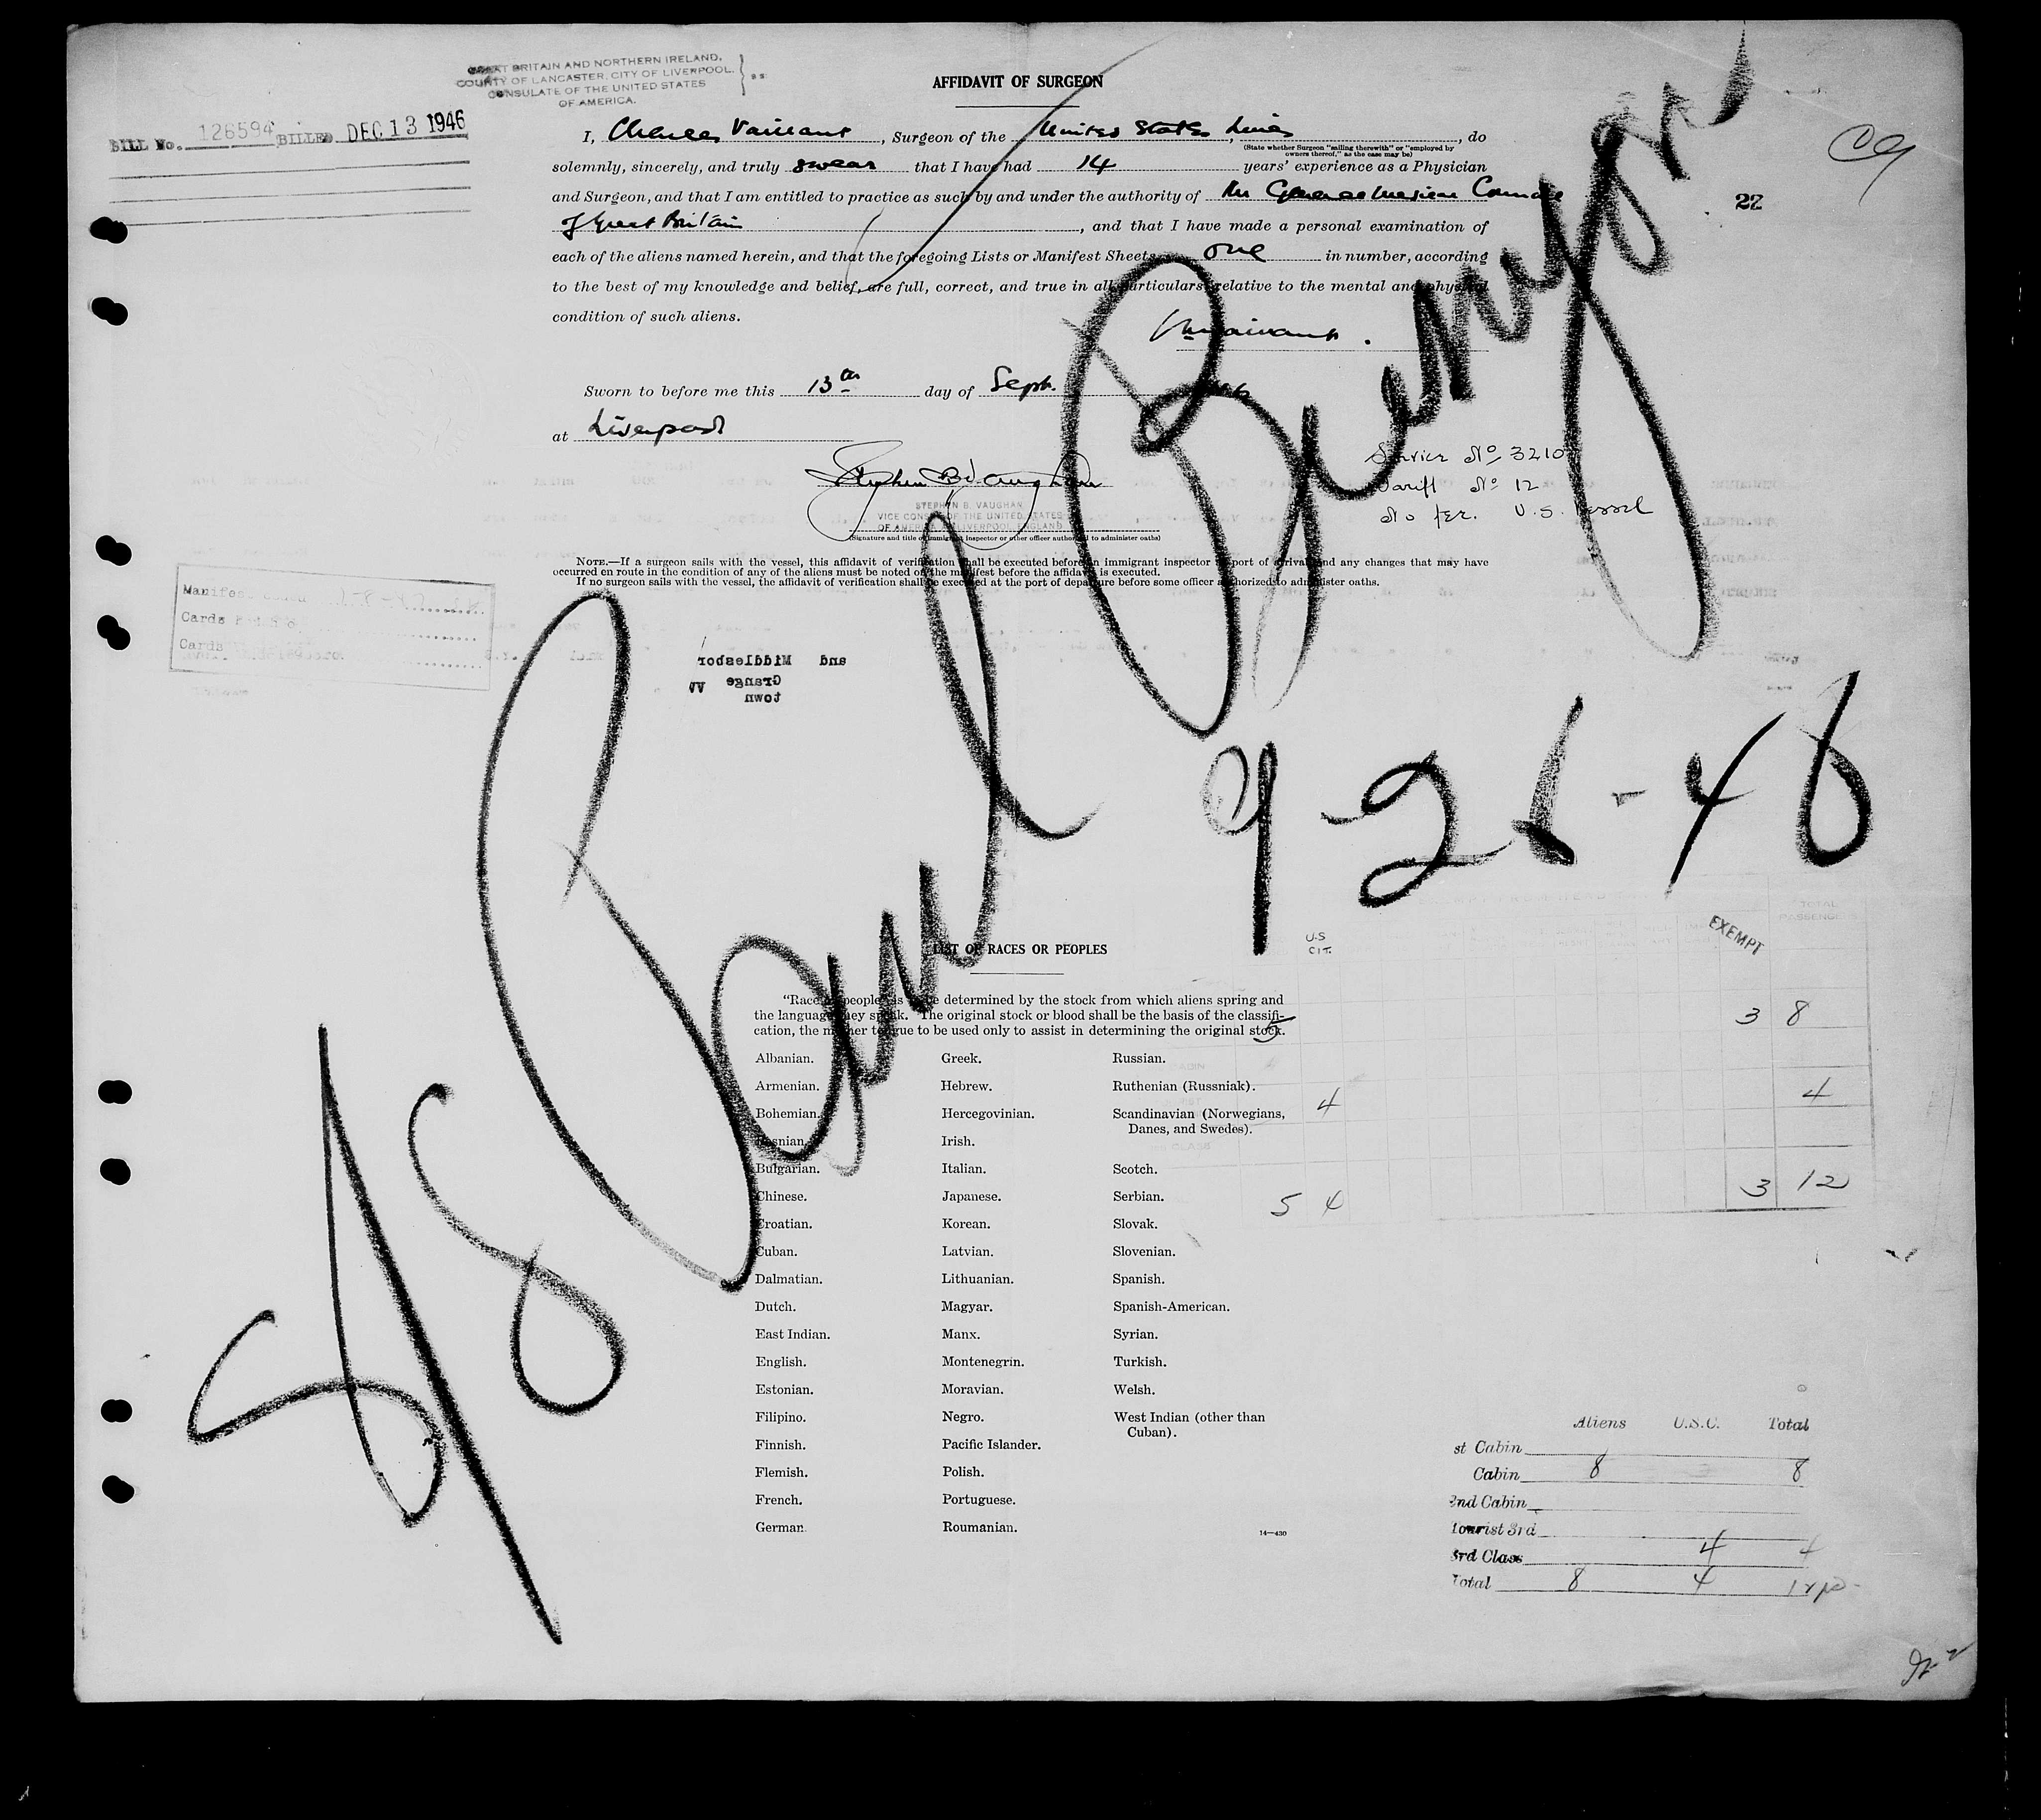 GREAT BRITAIN AND NORTHERN IRELAND,
COUNTY OF LANCASTER, CITY OF LIVERPOOL.
CONSULATE OF THE UNITED STATES
OF AMERICA.
} ss
BILL No. 126594 BILLED DEC 13 1946
AFFIDAVIT OF SURGEON
I, Charles Vaillant, Surgeon of the United States Lines, do
(State whether Surgeon "sailing therewith" or "employed by
owners thereof," as the case may be)
solemnly, sincerely, and truly swear that I have had 14 years' experience as a Physician
and Surgeon, and that I am entitled to practice as such by and under the authority of the General Medical Council
of Great Britain, and that I have made a personal examination of
each of the aliens named herein, and that the foregoing Lists or Manifest Sheets, one in number, according
to the best of my knowledge and belief, are full, correct, and true in all particulars relative to the mental and physical
condition of such aliens.
22
Sworn to before me this 13th day of Sept.
at Liverpool
Stephen B Vaughan
STEPHEN B. VAUGHAN
VICE CONSUL OF THE UNITED STATES
OF AMERICA LIVERPOOL, ENGLAND
(Signature and title of immigrant inspector or other officer authorized to administer oaths)
Service No 3210
Tariff No 12
No fee. U.S. Vessel
NOTE.—If a surgeon sails with the vessel, this affidavit of verification shall be executed before an immigrant inspector at port of arrival and any changes that may have
occurred en route in the condition of any of the aliens must be noted on the manifest before the affidavit is executed.
If no surgeon sails with the vessel, the affidavit of verification shall be executed at the port of departure before some officer authorized to administer oaths.
Manifest
Cards
Cards
and Middlesbor
Grange
town
S/S Paul Bunyan
9-26-46
LIST OF RACES OR PEOPLES
"Race or people" is to be determined by the stock from which aliens spring and
the language they speak. The original stock or blood shall be the basis of the classifi-
cation, the mother tongue to be used only to assist in determining the original stock.
Albanian.
Armenian.
Bohemian.
Bosnian.
Bulgarian.
Chinese.
Croatian.
Cuban.
Dalmatian.
Dutch.
East Indian.
English.
Estonian.
Filipino.
Finnish.
Flemish.
French.
German.
Greek.
Hebrew.
Hercegovinian.
Irish.
Italian.
Japanese.
Korean.
Latvian.
Lithuanian.
Magyar.
Manx.
Montenegrin.
Moravian.
Negro.
Pacific Islander.
Polish.
Portuguese.
Roumanian.
Russian.
Ruthenian (Russniak).
Scandinavian (Norwegians,
Danes, and Swedes).
Scotch.
Serbian.
Slovak.
Slovenian.
Spanish.
Spanish-American.
Syrian.
Turkish.
Welsh.
West Indian (other than
Cuban).
14—430
U.S CIT. EXEMPT TOTAL PASSENGERS
5 3 8
4 4
5 4 3 12
Aliens U.S.C. Total
st Cabin
Cabin 8 8
2nd Cabin
Tourist 3rd
3rd Class 4 4
Total 8 4 12